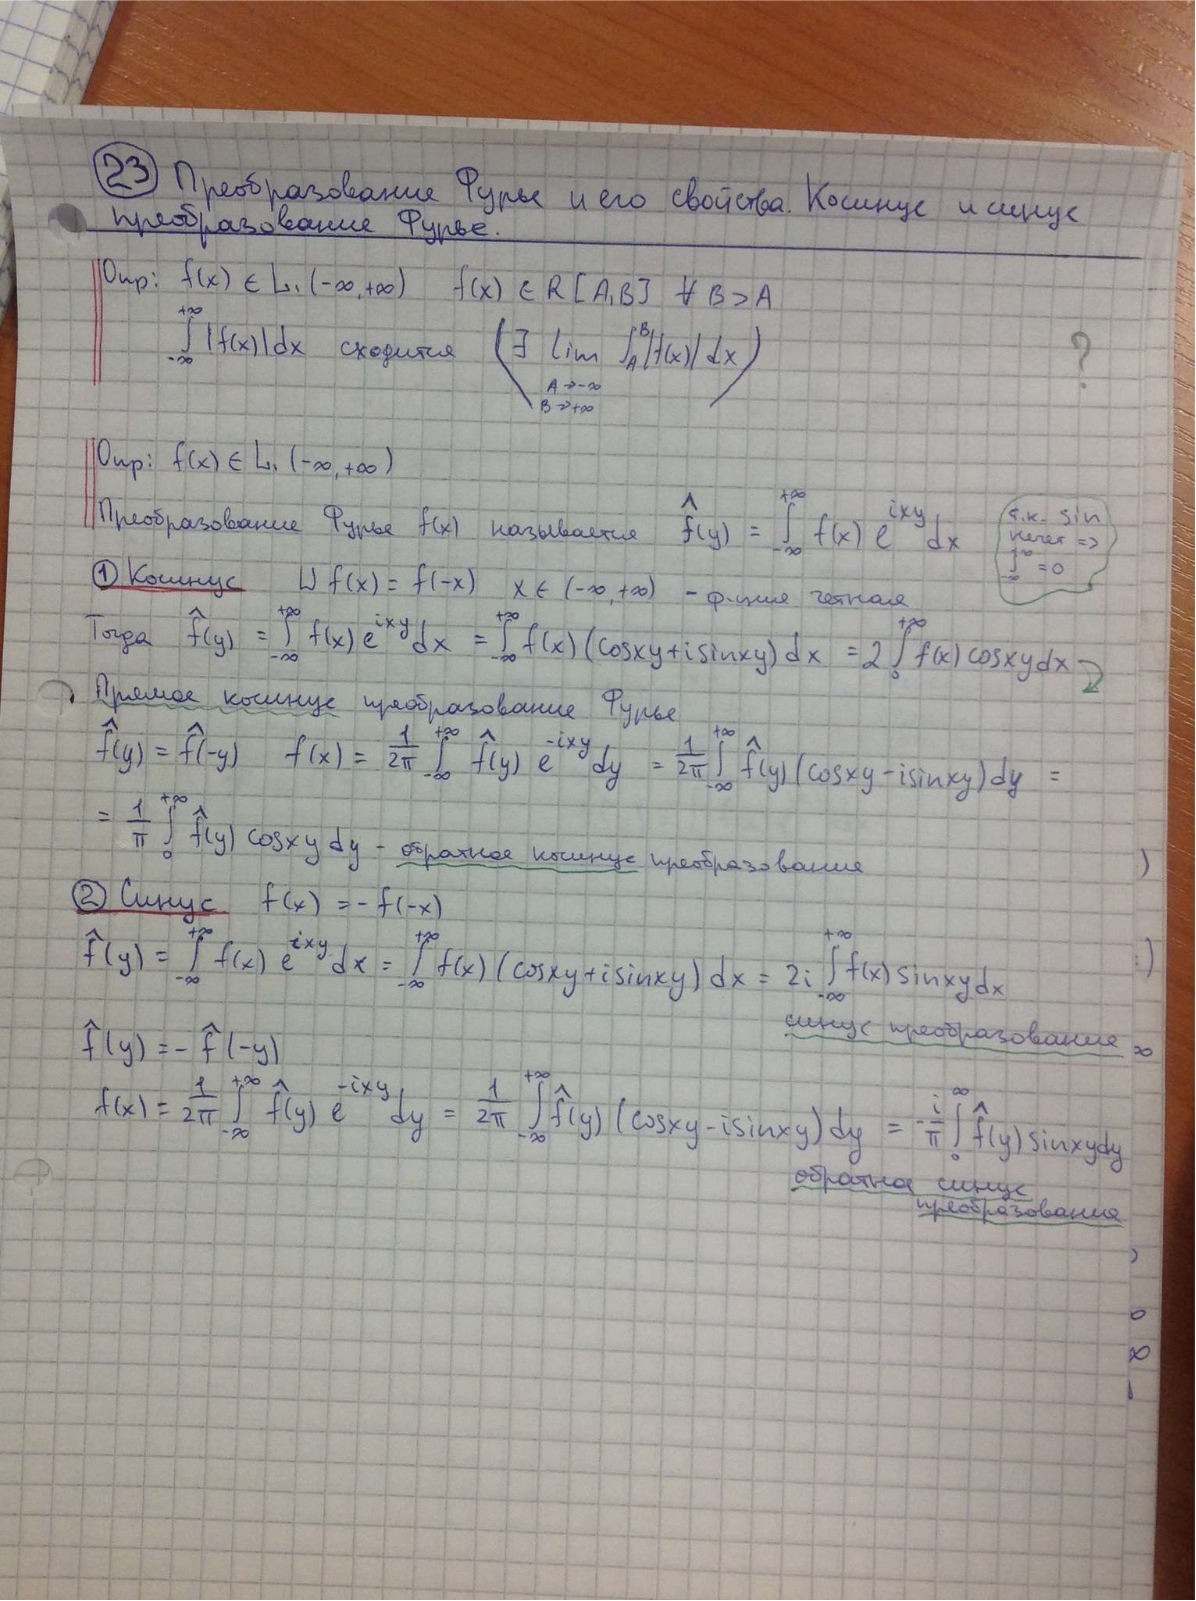 23 Преобразование Фурье и его свойства. Косинус и синус
преобразование Фурье.
Опр: f(x) ∈ L₁ (-∞, +∞) f(x) ∈ R [A, B] ∀ B > A
∫_{-∞}^{+∞} |f(x)| dx сходится (∃ lim_{A→-∞, B→+∞} ∫_A^B |f(x)| dx)
?
Опр: f(x) ∈ L₁ (-∞, +∞)
Преобразование Фурье f(x) называется f̂(y) = ∫_{-∞}^{+∞} f(x) e^{ixy} dx
т.к. sin
нечет =>
∫_{-∞}^{∞} = 0
① Косинус ⊔ f(x) = f(-x) x ∈ (-∞, +∞) - ф-ция четная
Тогда f̂(y) = ∫_{-∞}^{+∞} f(x) e^{ixy} dx = ∫_{-∞}^{+∞} f(x) (cosxy + isinxy) dx = 2 ∫_0^{+∞} f(x) cosxy dx
Прямое косинус преобразование Фурье
f̂(y) = f̂(-y) f(x) = 1/2π ∫_{-∞}^{+∞} f̂(y) e^{-ixy} dy = 1/2π ∫_{-∞}^{+∞} f̂(y) (cosxy - isinxy) dy =
= 1/π ∫_0^{+∞} f̂(y) cosxy dy - обратное косинус преобразование
② Синус f(x) = - f(-x)
f̂(y) = ∫_{-∞}^{+∞} f(x) e^{ixy} dx = ∫_{-∞}^{+∞} f(x) (cosxy + isinxy) dx = 2i ∫_{-∞}^{+∞} f(x) sinxy dx
синус преобразование
f̂(y) = - f̂(-y)
f(x) = 1/2π ∫_{-∞}^{+∞} f̂(y) e^{-ixy} dy = 1/2π ∫_{-∞}^{+∞} f̂(y) (cosxy - isinxy) dy = -i/π ∫_0^{∞} f̂(y) sinxy dy
обратное синус
преобразование